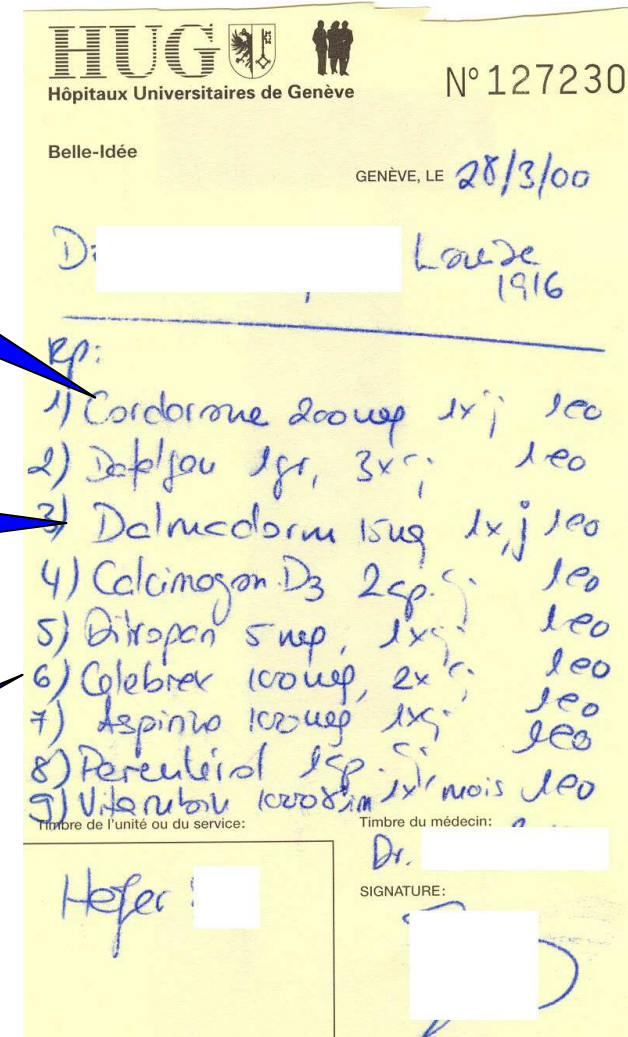 HUG
Hôpitaux Universitaires de Genève
N° 127230
Belle-Idée
GENÈVE, LE 28/3/00
Louise
1916
Rp:
1) Cordarone 200mg 1x/j 1eo
2) Dafalgan 1gr, 3x/j 1eo
3) Dalmadorm 15mg 1x/j 1eo
4) Calcimagon D3 2cp/j 1eo
5) Ditropan 5mg, 1x/j 1eo
6) Celebrex 100mg, 2x/j 1eo
7) Aspirine 100mg 1x/j 1eo
8) 1cp/j 1eo
9) 1x/mois 1eo
Timbre de l'unité ou du service:
Timbre du médecin:
Dr.
SIGNATURE: